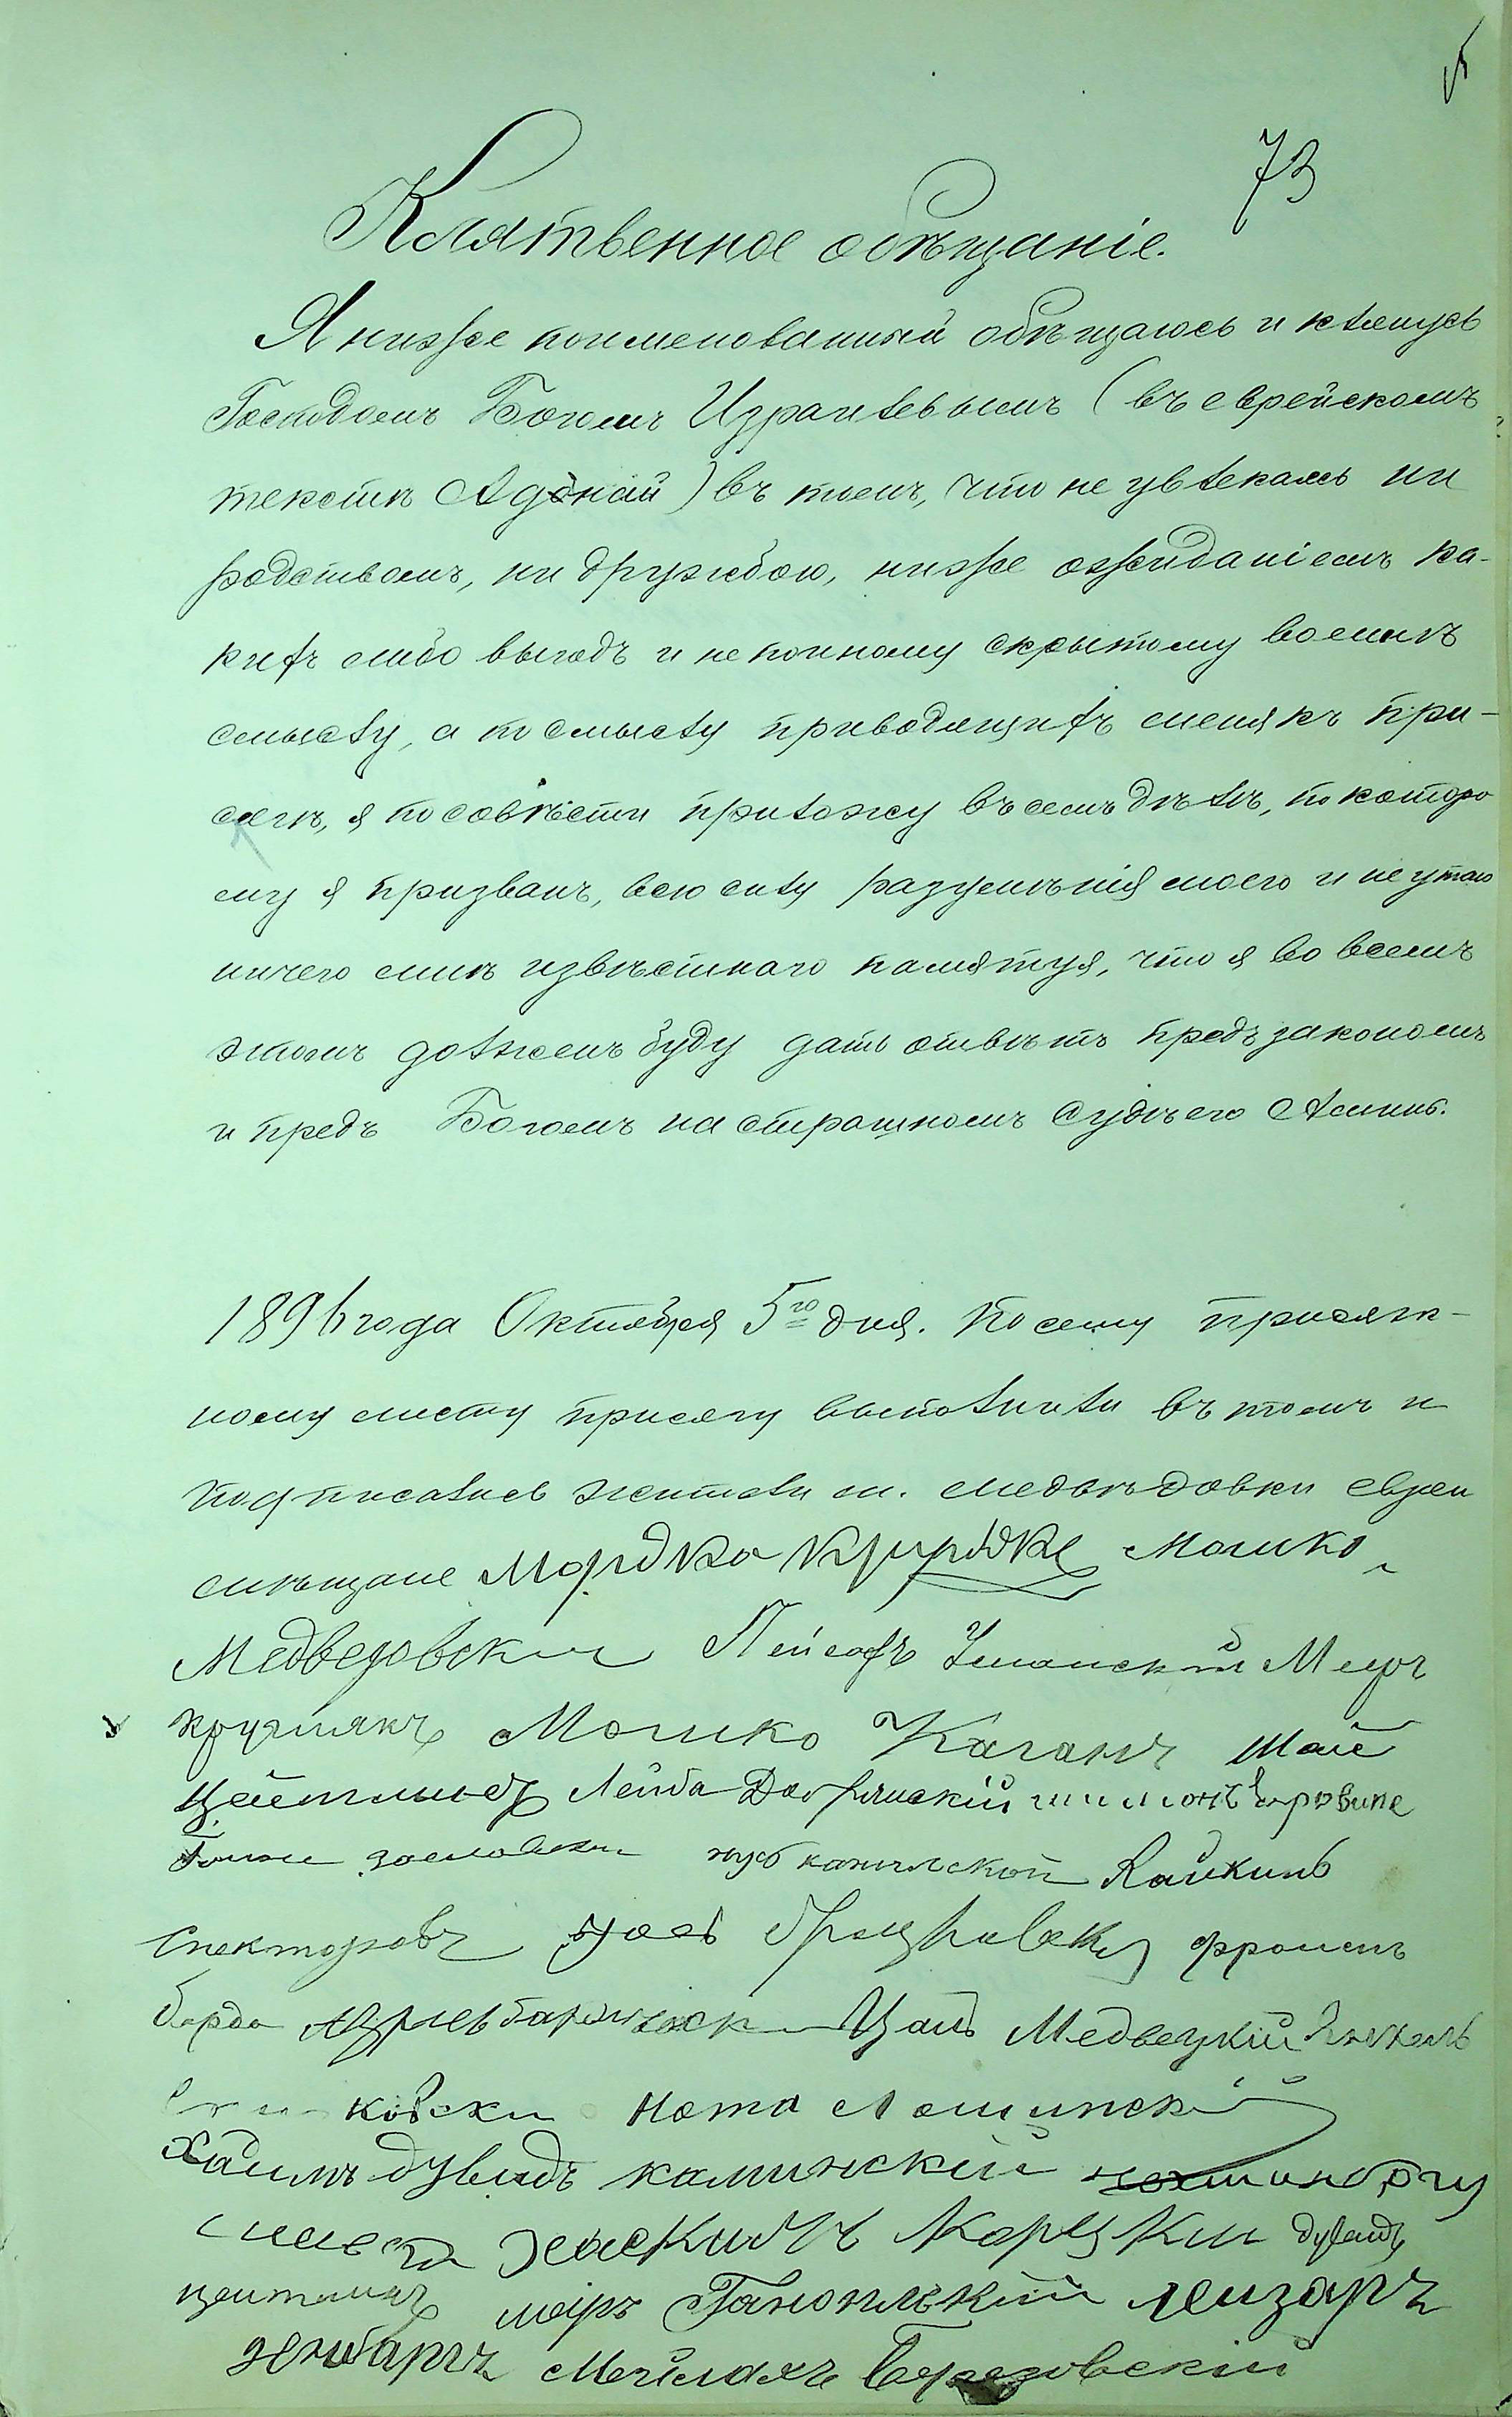 73
Клятвенное обѣщаніе.
Я ниже поименованный обѣщаюсь и клянусь
Господомъ Богомъ Израилевымъ (въ еврейскомъ
текстѣ Адонай) въ томъ, что не увлекаясь ни
родствомъ, ни дружбою, ниже ожиданіемъ ка-
кихъ либо выгодъ и не по иному скрытому во мнѣ
смыслу, а по смыслу приводящихъ меня къ при-
сягѣ, я по совѣсти приложу въ семъ дѣлѣ, по которо
му я призванъ, всю силу разумѣнія моего и не утаю
ничего мнѣ извѣстнаго памятуя, что я во всемъ
этомъ долженъ буду дать отвѣтъ предъ закономъ
и предъ Богомъ на страшномъ судѣ его Аминь.
1896 года Октября 5го дня. По сему присяж-
ному листу присягу выполнили въ томъ и
подписались жители м. Медвѣдовки евреи
мѣщане Мордко Мошко
Медведовски Пейсахъ Уманский Меръ
кругликъ Мошко Каганъ Шае
Цейтлинъ Лейба
зославски Хайкинъ
Спекторовъ фроимъ
борда Азриль Цаль Медвецкій
ковски Нота Лошински
Хаимъ дувидъ каминский
Хаскилъ Корецки дувидъ
цейтлинъ меиръ Ганопилский леизаръ
зенбаръ Мейлахъ Березовскій